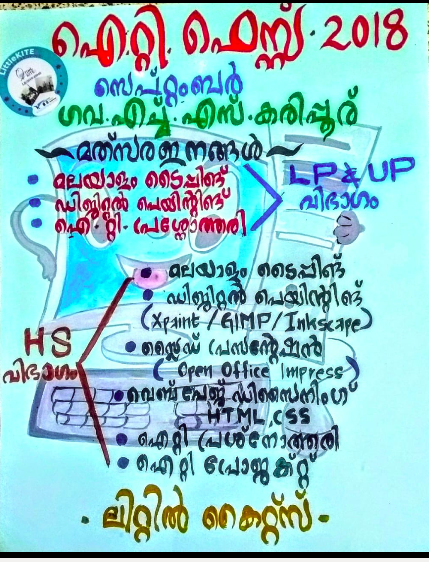 LittleKITE
ഐ.റ്റി. ഫെസ്റ്റ്. 2018
സെപ്റ്റംബർ
ഗവ.എച്ച്.എസ്.കരിപ്പൂര്
മത്സരഇനങ്ങൾ
മലയാളം ടൈപ്പിങ്ങ്
ഡിജിറ്റൽ പെയിന്റിങ്ങ്
ഐ.റ്റി. പ്രശ്നോത്തരി
LP & UP
വിഭാഗം
മലയാളം ടൈപ്പിങ്ങ്
ഡിജിറ്റൽ പെയിന്റിങ്ങ്
(Xpaint/GIMP/Inkscape)
സ്ലൈഡ് പ്രസന്റേഷൻ
(Open Office Impress)
വെബ് പേജ് ഡിസൈനിംഗ്
HTML,CSS
ഐറ്റി പ്രശ്നോത്തരി
ഐറ്റി പ്രോജക്റ്റ്
HS
വിഭാഗം
ലിറ്റിൽ കൈറ്റ്സ്